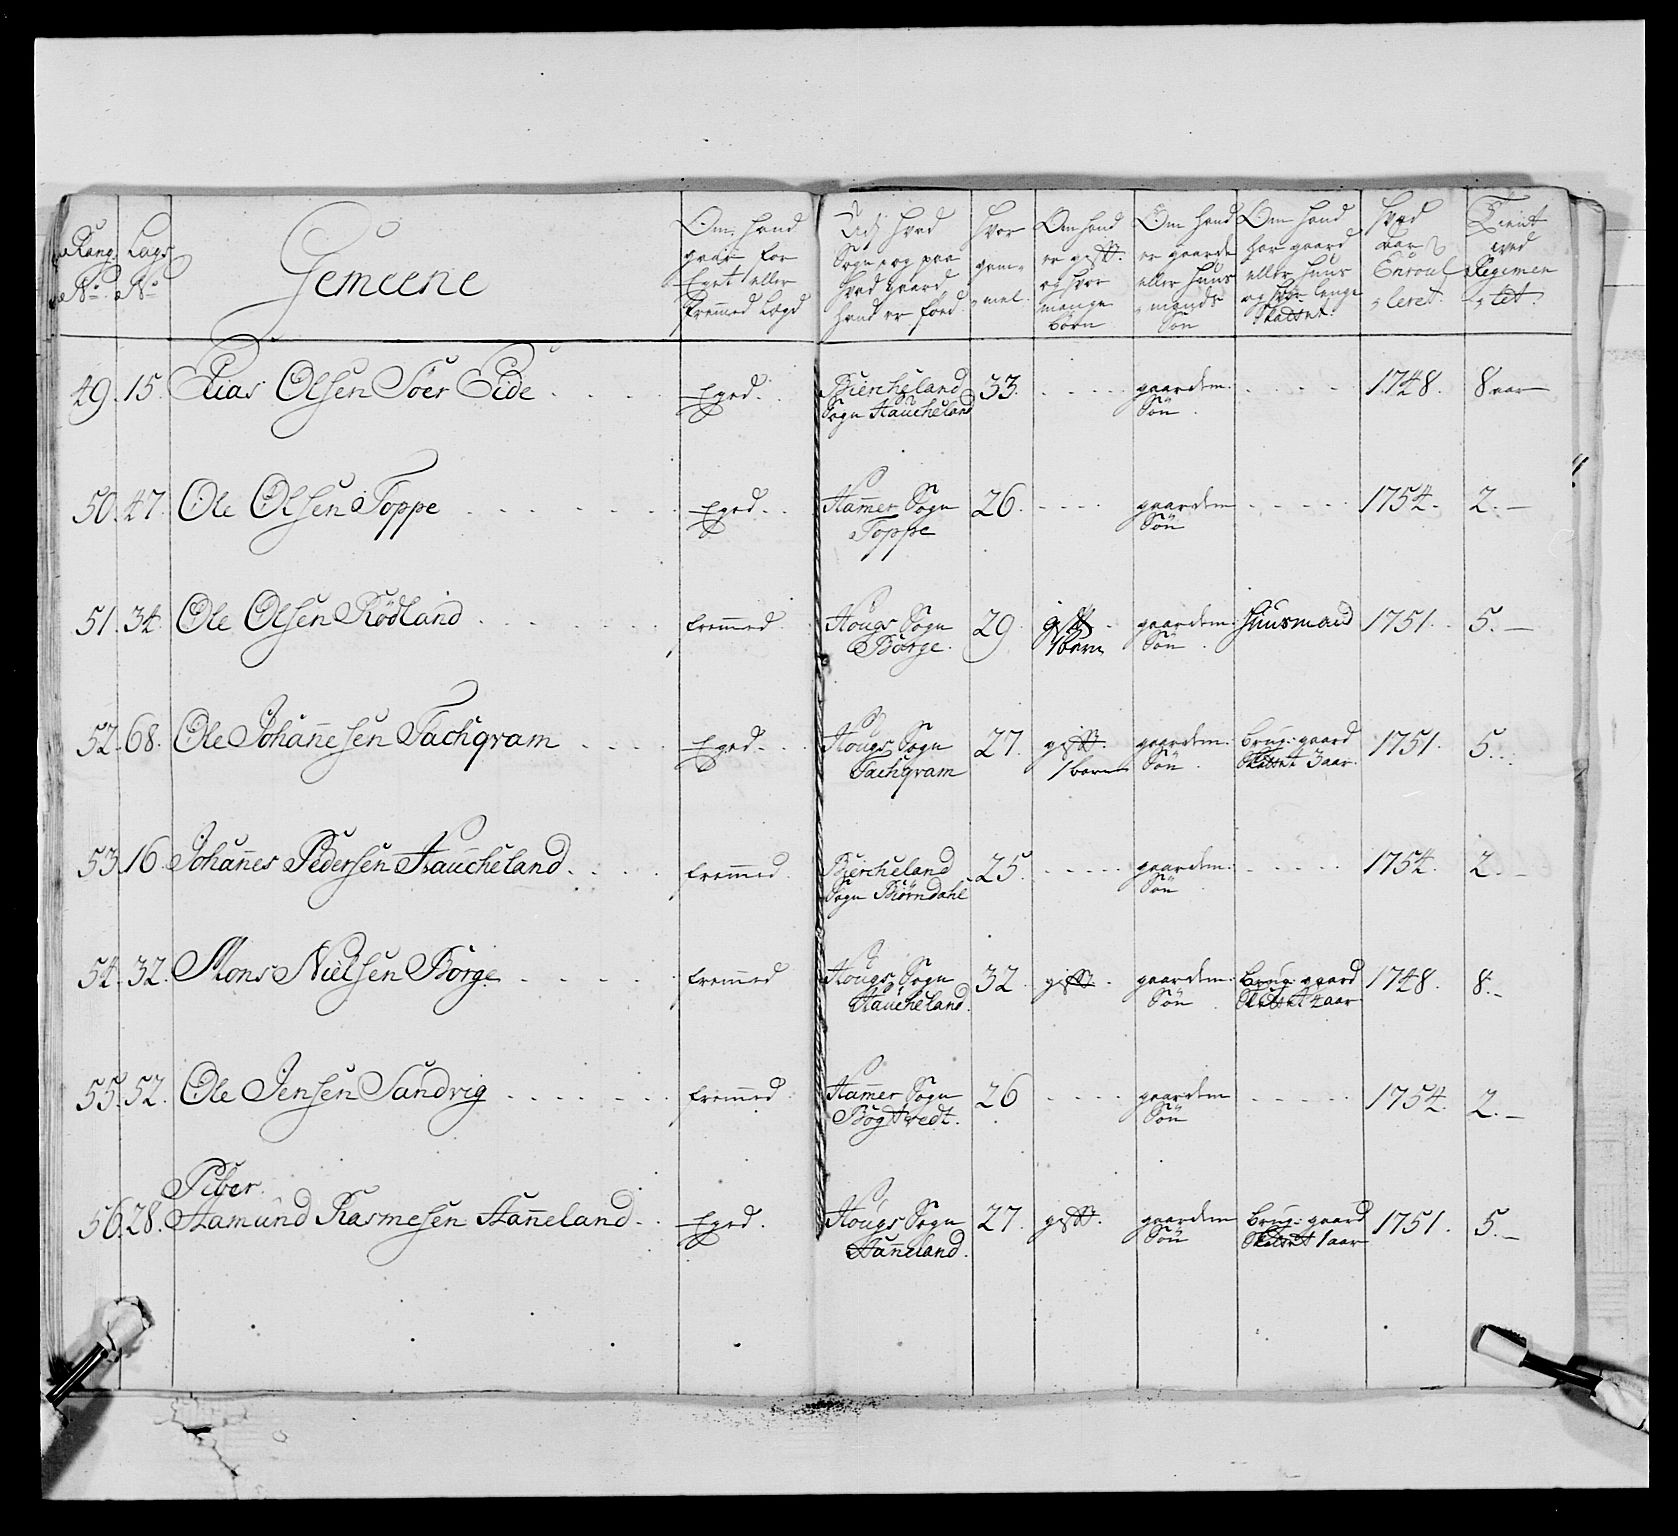 Rang No. Lags No. Gemeene Om hand gaar for Eget eller fremmed Lægd Udj hvad Sogn og paa hvad gaard hand er föed Hvor gam-mel Om hand er gift og hvor mange börn Om hand er gaard eller huus mands Sön Om hand har gaard eller huus og hvor lenge Skattet hvad aar Enroul-leret Tient ved Regimen-tet
49. 15. Elias Olsen Söer Eide Eged. Biercheland Sogn Haucheland 33. gaardm. Sön 1748. 8 aar
50. 47. Ole Olsen Toppe Eged. Hamer Sogn Toppe 26. gaardm Sön 1754. 2.
51. 34. Ole Olsen Rödland fremmed Hougs Sogn Börge. 29. gift 1 barn gaardm. Sön Huusmand 1751. 5.
52. 68. Ole Johanesen Tachqvam Eged. Hougs Sogn Tachqvam 27. gift. 1 barn gaardm. Sön. Brug: gaard Skattet 3 aar. 1751. 5.
53. 16. Johanes Pedersen Haucheland fremmed. Biercheland Sogn Biörndahl 25. gaardm. Sön 1754. 2
54. 32. Mons Nielsen Börge fremmed Hougs Sogn Haucheland. 32. gift. gaardm. Sön Brug: gaard Skattet 4 aar 1748. 8.
55. 52. Ole Jensen Sandvig fremmed Hamer Sogn 26 gaardm Sön 1754. 2.
Piber.
56. 28. Aamund Rasmesen Haneland Eged. Hougs Sogn Haneland. 27. gift. gaardm Sön Brug: gaard Skattet 1 aar 1751. 5.